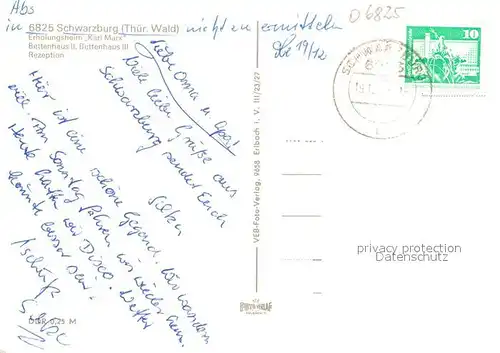 Abs
in 6825 Schwarzburg (Thür. Wald) nicht zu ermitteln
Erholungsheim „Karl Marx"
Bettenhaus II, Bettenhaus III
Rezeption
19/12
O 6825
10
Liebe Oma u. Opa!
Viele liebe Grüße aus
Schwarzburg sendet Euch
Silke
Hier ist eine schöne Gegend. Wir wandern
viel. Am Sonntag fahren wir wieder heim.
Heute hatten wir Disco. Wetter
könnte besser sein.
Tschüß
Silke
VEB-Foto-Verlag, 9658 Erlbach i. V. III/23/27
DDR 0,25 M
privacy protection
AnsichtskartenVersand